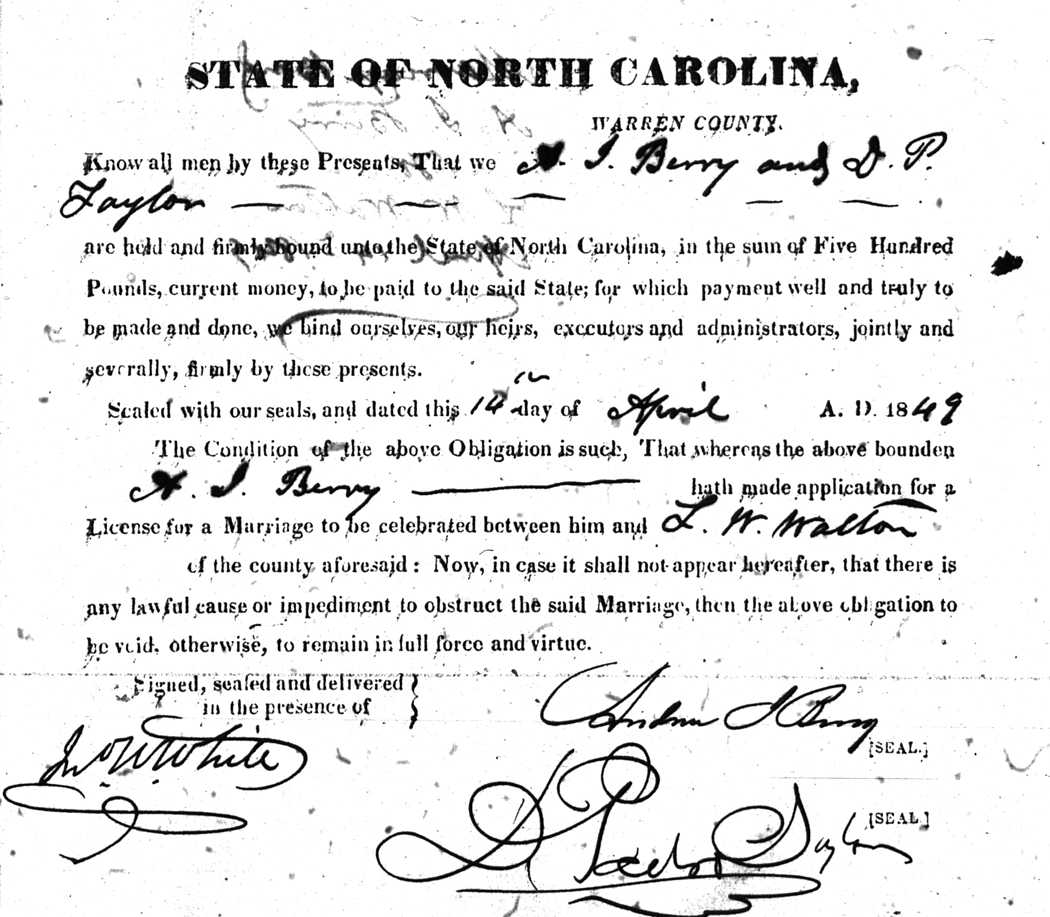 STATE OF NORTH CAROLINA,
WARREN COUNTY.
Know all men by these Presents, That we A. J. Berry and D. P.
Taylor
are held and firmly bound unto the State of North Carolina, in the sum of Five Hundred
Pounds, current money, to be paid to the said State; for which payment well and truly to
be made and done, we bind ourselves, our heirs, executors and administrators, jointly and
severally, firmly by these presents.
Sealed with our seals, and dated this 14th day of April A. D. 1849
The Condition of the above Obligation is such, That whereas the above bounden
A. J. Berry hath made application for a
License for a Marriage to be celebrated between him and L. W. Walton
of the county aforesaid: Now, in case it shall not appear hereafter, that there is
any lawful cause or impediment to obstruct the said Marriage, then the above obligation to
be void, otherwise, to remain in full force and virtue.
Signed, sealed and delivered
in the presence of
Andrew J Berry
[SEAL.]
Jno W. White
[SEAL]
D. Taylor